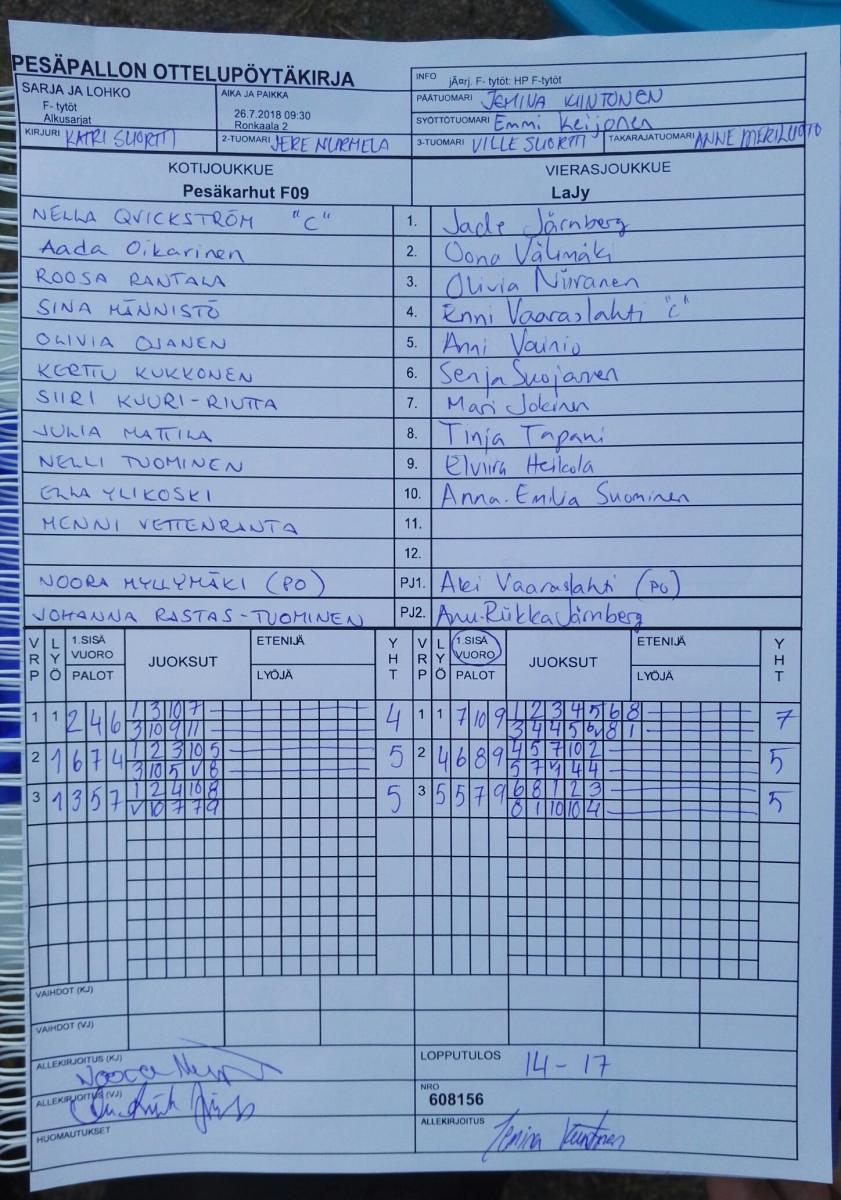 PESÄPALLON OTTELUPÖYTÄKIRJA
SARJA JA LOHKO
F- tytöt
Alkusarjat
AIKA JA PAIKKA
26.7.2018 09:30
Ronkaala 2
INFO jÄ¤rj. F- tytöt: HP F-tytöt
PÄÄTUOMARI JEMINA KUNTONEN
SYÖTTÖTUOMARI Emmi Keijonen
KIRJURI KATRI SUORTTI 2-TUOMARI JERE NURMELA 3-TUOMARI VILLE SUORTTI TAKARAJATUOMARI ANNE MERILUOTO
KOTIJOUKKUE VIERASJOUKKUE
Pesäkarhut F09 LaJy
NELLA QVICKSTRÖM "C" 1. Jade Järnberg
Aada Oikarinen 2. Oona Välimäki
ROOSA RANTALA 3. Olivia Niiranen
SINA MÄNNISTÖ 4. Enni Vaaraslahti "C"
OLIVIA OJANEN 5. Anni Vainio
KERTTU KUKKONEN 6. Senja Suojanen
SIIRI KUURI-RIUTTA 7. Mari Jokinen
JULIA MATTILA 8. Tinja Tapani
NELLI TUOMINEN 9. Elviira Heikola
ELLA YLIKOSKI 10. Anna-Emilia Suominen
MENNI VETTENRANTA 11.
12.
NOORA MYLLYMÄKI (PO) PJ1. Aki Vaaraslahti (PO)
JOHANNA RASTAS-TUOMINEN PJ2. Anu-Riikka Järnberg
VRP LYÖ 1.SISÄ VUORO PALOT JUOKSUT ETENIJÄ LYÖJÄ YHT VRP LYÖ 1.SISÄ VUORO PALOT JUOKSUT ETENIJÄ LYÖJÄ YHT
1 1 2 4 6 1 3 10 7 4 1 1 7 10 9 1 2 3 4 5 6 8 7
3 10 9 11 3 4 4 5 6 V 8 1
2 1 6 7 4 1 2 3 10 5 5 2 4 6 8 9 4 5 7 10 2 5
3 10 5 V 8 5 7 4 4
3 1 3 5 7 1 2 4 10 8 5 3 5 5 7 9 6 8 1 2 3 5
V 10 7 7 9 8 1 10 10 4
VAIHDOT (KJ)
VAIHDOT (VJ)
ALLEKIRJOITUS (KJ) LOPPUTULOS 14-17
ALLEKIRJOITUS (VJ) NRO
608156
HUOMAUTUKSET ALLEKIRJOITUS